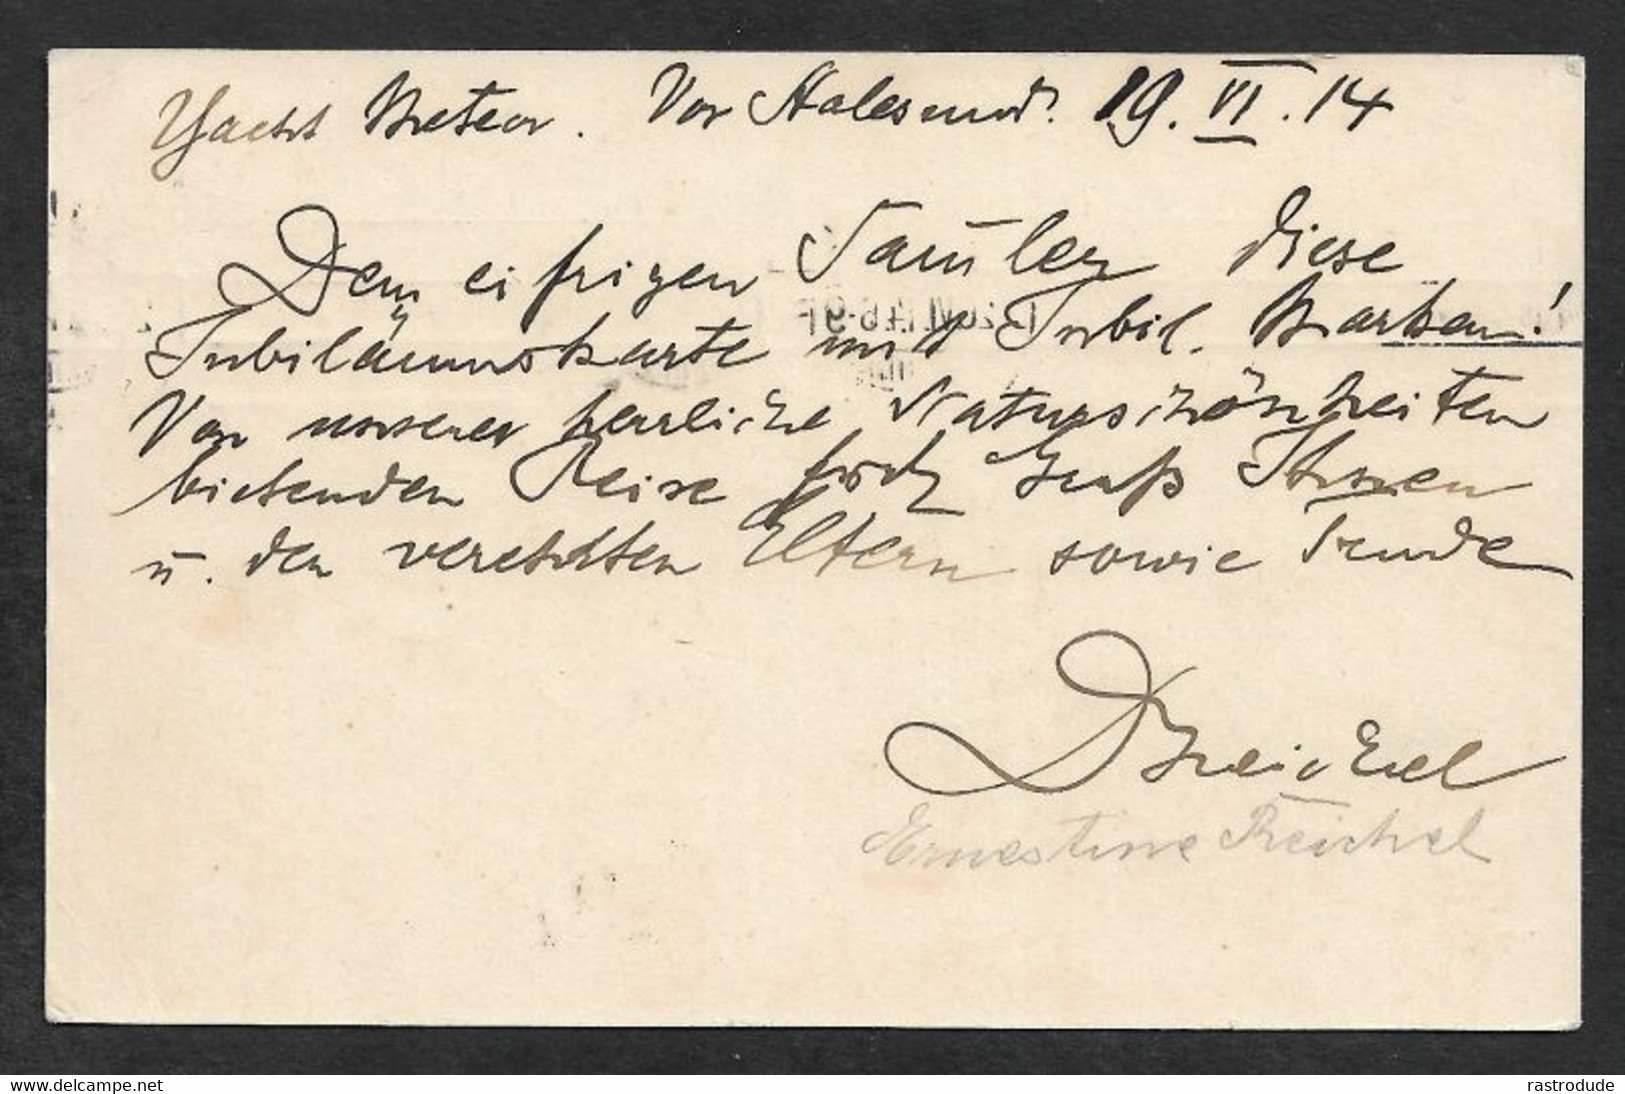 Yacht Meteor. Vor Aalesund. 19. VI. 14
Dem eifrigen Sam̄ler diese
Jubiläumskarte mit Jubil. Marken!
Von unserer herrliche Naturschönheiten
bietenden Reise herzl. Gruß Ihnen
u. den verehrten Eltern sowie Trude
DrReichel
Ernestine Reichel
delcampe.net
rastrodude